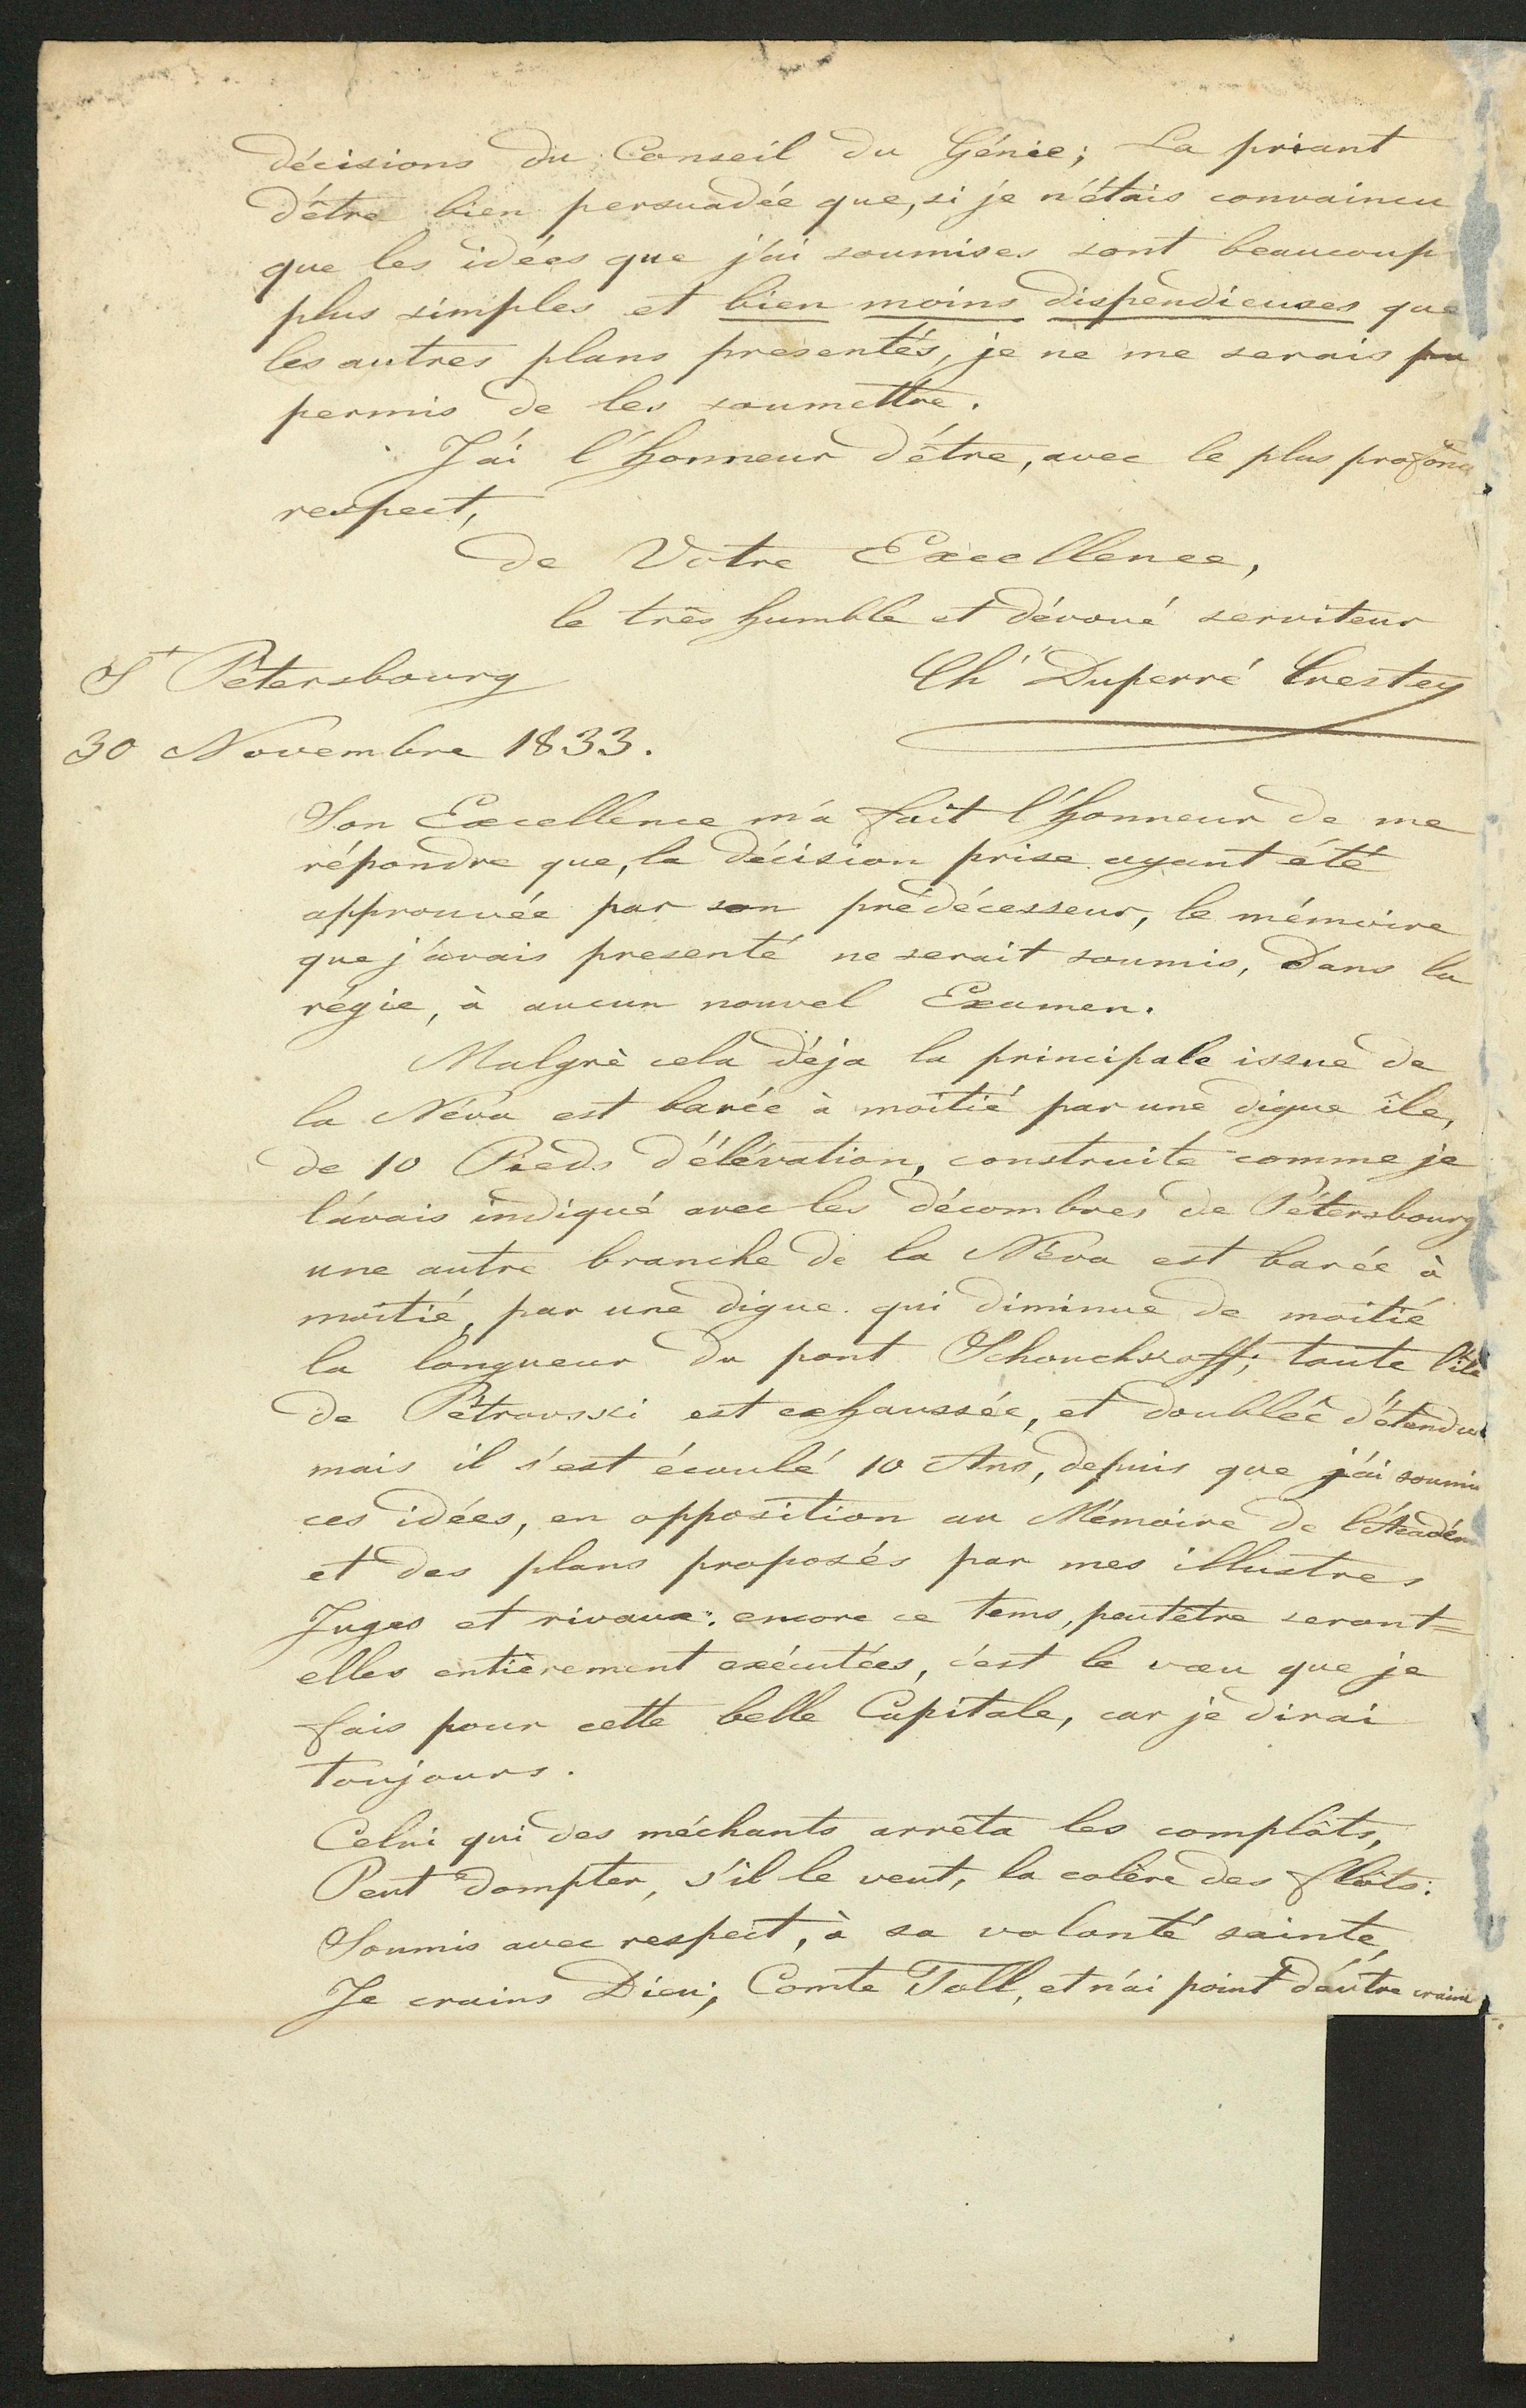 décisions du Conseil du Génie; La priant
d'être bien persuadée que, si je n'étais convaincu
que les idées que j'ai soumises sont beaucoup
plus simples et bien moins dispendieuses que
les autres plans presentés, je ne me serais pas
permis de les soumettre.
J'ai l'honneur d'être, avec le plus profond
respect,
de Votre Excellence,
le très humble et dévoué serviteur
St Pétersbourg
Chr Duperré Crestey
30 Novembre 1833.
Son Excellence m'a fait l'honneur de me
répondre que, la décision prise ayant été
approuvée par son prédécesseur, le mémoire
que j'avais presenté ne serait soumis, dans la
régie, à aucun nouvel Examen.
Malgrè cela déja la principale issue de
la Néva est barée à moitié par une digue île,
de 10 Pieds d'élévation, construite comme je
l'avais indiqué avec les décombres de Pétersbourg
une autre branche de la Néva est barée à
moitié, par une digue qui diminue de moitié
la longueur du pont Schouchkoff; toute l'île
de Pétrovski est exhaussée, et doublée d'étendue
mais il s'est écoulé 10 Ans, depuis que j'ai soumis
ces idées, en opposition au Mémoire de l'Académ
et des plans proposés par mes illustres
Juges et rivaux: encore ce tems, peutêtre seront=
elles entièrement exécutées, c'est le voeu que je
fais pour cette belle Capitale, car je dirai
toujours.
Celui qui des méchants arrêta les complôts,
Peut dompter, s'il le veut, la colère des flôts:
Soumis avec respect, à sa volonté sainte,
Je crains Dieu; Comte Toll, et n'ai point d'autre crainte